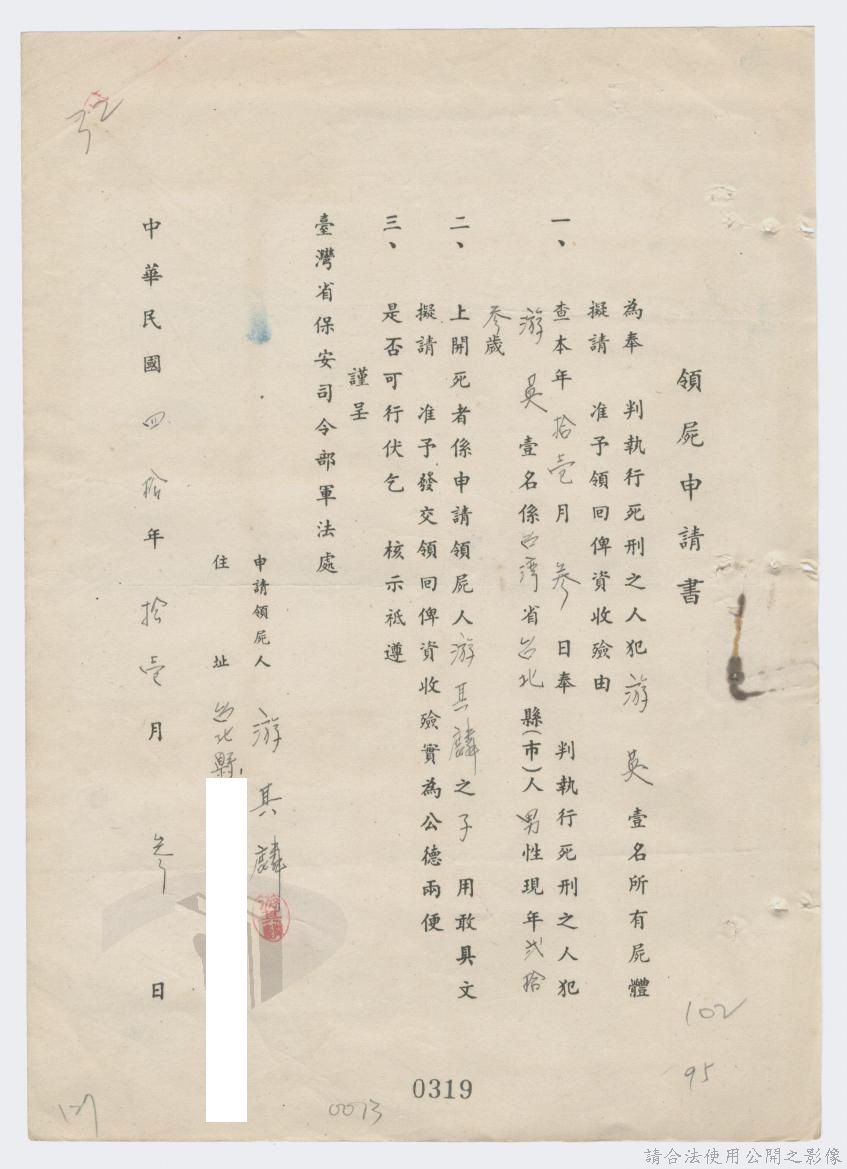 領屍申請書
為奉　判執行死刑之人犯游英壹名所有屍體
擬請　准予領回俾資收殮由
一、查本年拾壹月參日奉　判執行死刑之人犯
游英壹名係台灣省台北縣(市)人男性現年弍拾
參歲
二、上開死者係申請領屍人游其麟之子　用敢具文
擬請　准予發交領回俾資收殮實為公德兩便
三、是否可行伏乞　核示祗遵
謹呈
臺灣省保安司令部軍法處
申請領屍人　游其麟
住址　台北縣
中華民國四拾年拾壹月參日
游其麟
102
95
0319
0073
請合法使用公開之影像